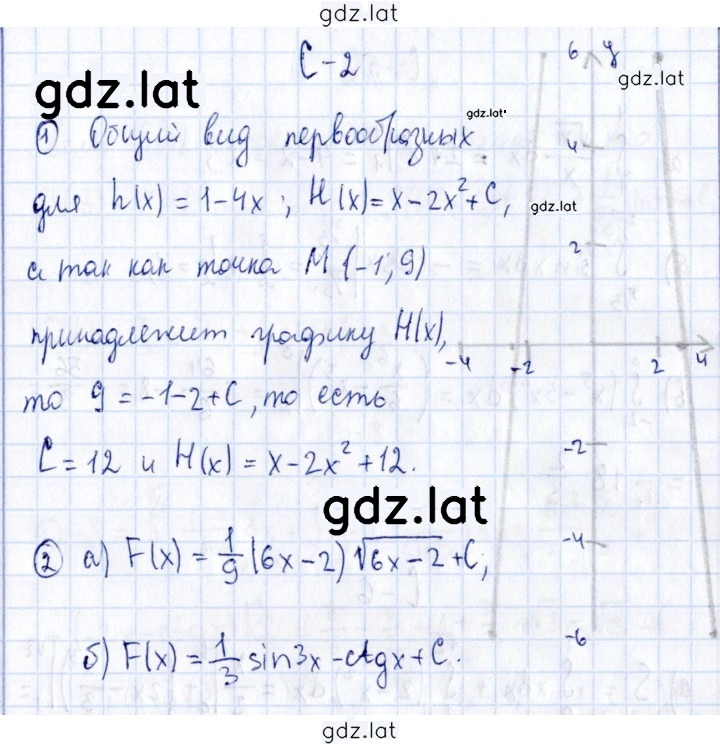 gdz.lat
С-2
6 y
gdz.lat
gdz.lat
① Общий вид первообразных
gdz.lat
4
для h(x) = 1-4x ; H(x) = x-2x²+C,
gdz.lat
а так как точка M (-1; 9)
2
принадлежит графику H(x),
-4 -2 2 4
то 9 = -1-2+C, то есть
C = 12 и H(x) = x-2x²+12.
-2
gdz.lat
② а) F(x) = 1/9 (6x-2) √6x-2 + C;
-4
б) F(x) = 1/3 sin3x - ctgx + C.
-6
gdz.lat